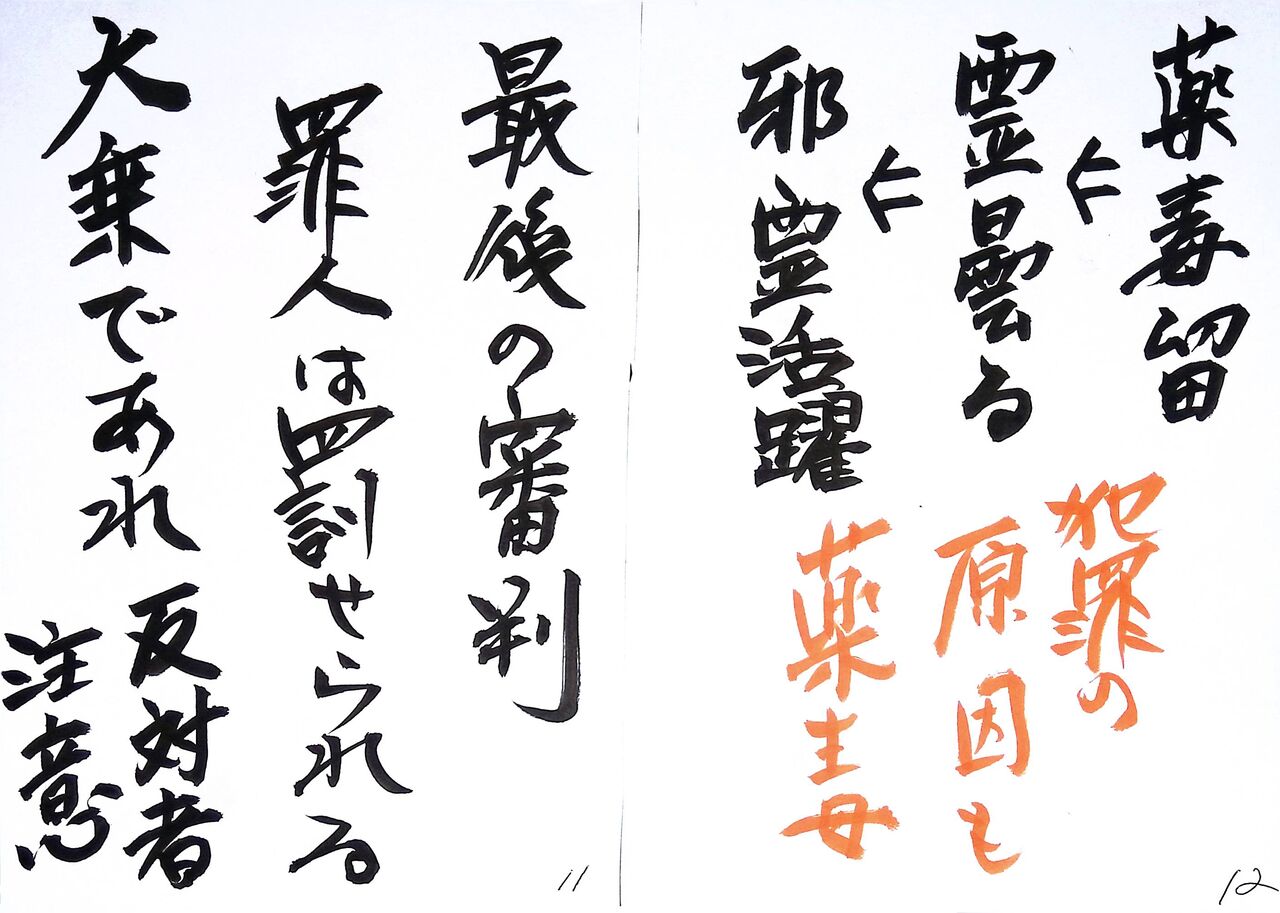 薬毒留
仁
霊曇る
仁
邪霊活躍
犯罪の
原因も
薬毒
12
最後の審判
罪人は罰せられる
大乗であれ
反対者
注意
11